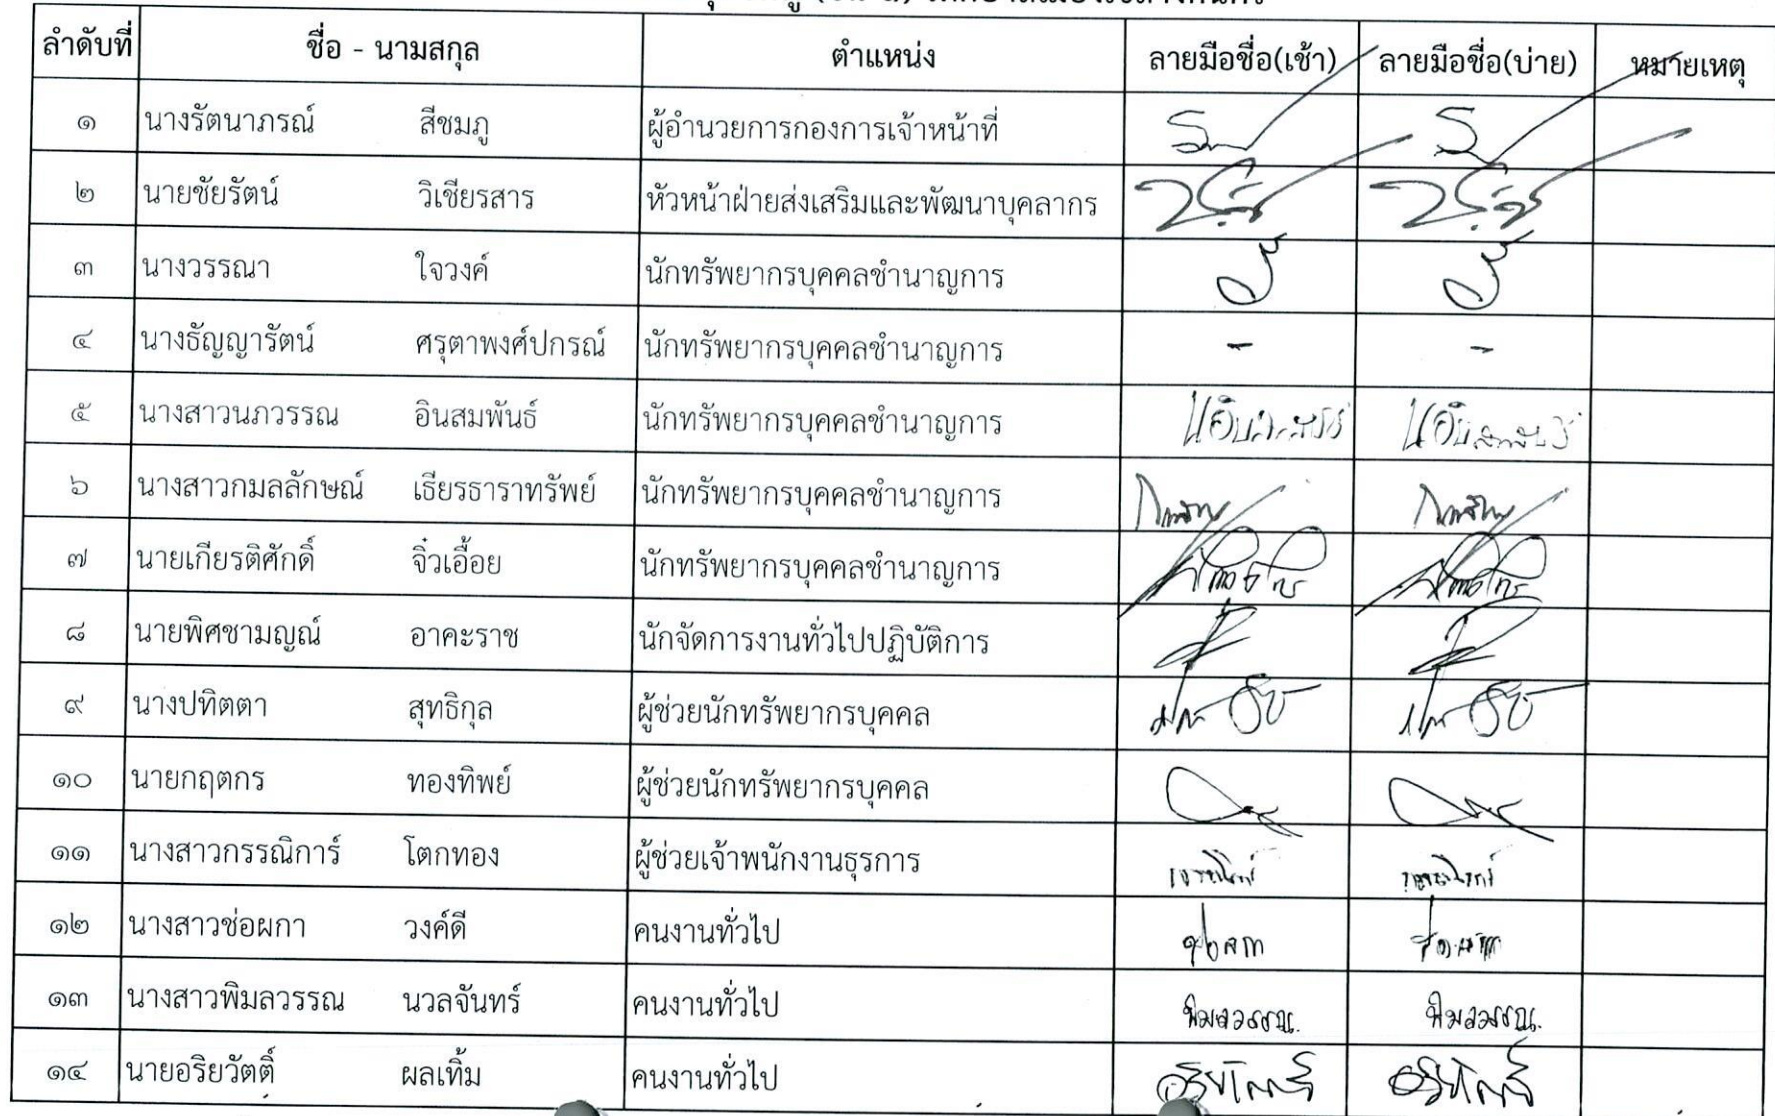 ลำดับที่ ชื่อ - นามสกุล ตำแหน่ง ลายมือชื่อ(เช้า) ลายมือชื่อ(บ่าย) หมายเหตุ
๑ นางรัตนาภรณ์ สีชมภู ผู้อำนวยการกองการเจ้าหน้าที่
๒ นายชัยรัตน์ วิเชียรสาร หัวหน้าฝ่ายส่งเสริมและพัฒนาบุคลากร
๓ นางวรรณา ใจวงค์ นักทรัพยากรบุคคลชำนาญการ
๔ นางธัญญารัตน์ ศรุตาพงศ์ปกรณ์ นักทรัพยากรบุคคลชำนาญการ - -
๕ นางสาวนภวรรณ อินสมพันธ์ นักทรัพยากรบุคคลชำนาญการ
๖ นางสาวกมลลักษณ์ เธียรธาราทรัพย์ นักทรัพยากรบุคคลชำนาญการ
๗ นายเกียรติศักดิ์ จิ๋วเอื้อย นักทรัพยากรบุคคลชำนาญการ
๘ นายพิศชามญณ์ อาคะราช นักจัดการงานทั่วไปปฏิบัติการ
๙ นางปทิตตา สุทธิกุล ผู้ช่วยนักทรัพยากรบุคคล
๑๐ นายกฤตกร ทองทิพย์ ผู้ช่วยนักทรัพยากรบุคคล
๑๑ นางสาวกรรณิการ์ โตกทอง ผู้ช่วยเจ้าพนักงานธุรการ
๑๒ นางสาวช่อผกา วงค์ดี คนงานทั่วไป
๑๓ นางสาวพิมลวรรณ นวลจันทร์ คนงานทั่วไป พิมลวรรณ. พิมลวรรณ.
๑๔ นายอริยวัตติ์ ผลเทิ้ม คนงานทั่วไป